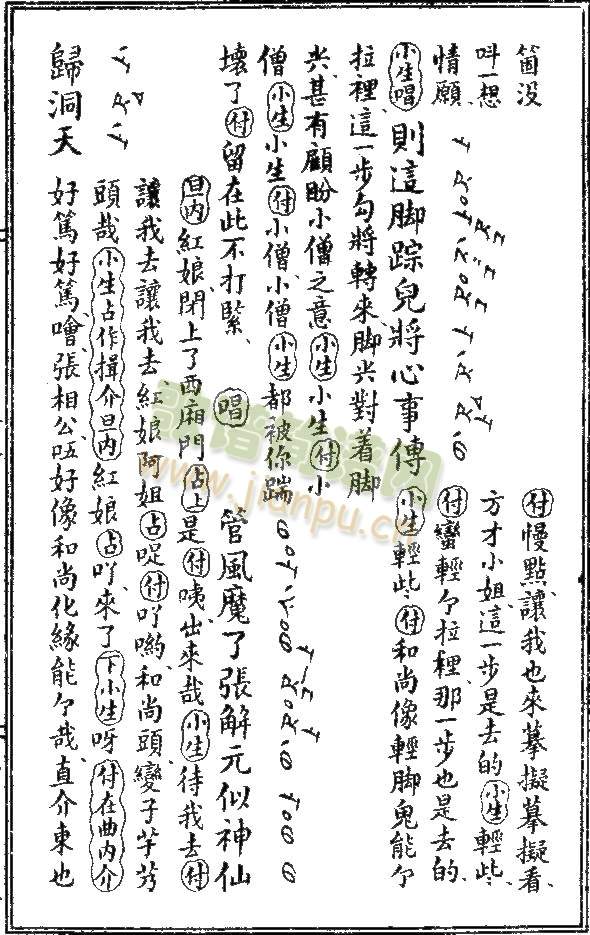 箇没　㕶慢點讓我也來摹擬摹擬看、
呌一想　方才小姐、這一步是去的㊀小生輕些、
情願、　付蠻輕个拉裡、那一步也是去的、
小生唱則這脚踪兒將心事傳小生輕些、付和尚像輕脚鬼能个
拉裡、這一步勾將轉來、脚尖對着脚
尖、甚有顧盼小僧之意小生小生付小
僧小生小生付小僧、小僧小生都被你踹
壞了付留在此不打緊、唱管風魔了張解元似神仙
旦内紅娘、閉上了西廂門占上是付咦、出來哉小生待我去付
讓我去、讓我去、紅娘阿姐占啐付吖喲、和尚頭變子芋艿
頭哉小生占作揖介旦内紅娘占吖、來了下小生呀付在曲内介
歸洞天　好篤好篤、噲、張相公、唔好像和尚化緣能个哉、直介東也
歌譜簡譜网
www.jianpu.cn